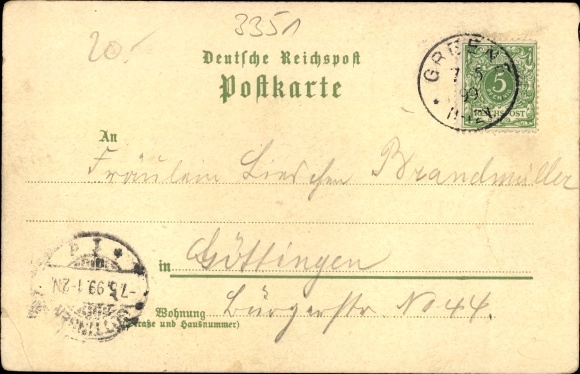 3351
20.-
Deutsche Reichspost
Postkarte
7 5
99
5
REICHSPOST
An
Fräulein Lieschen Brandmüller
in Göttingen
Wohnung Bürgerstr. No 44.
(Straße und Hausnummer)
-7.5.99.1-2N.